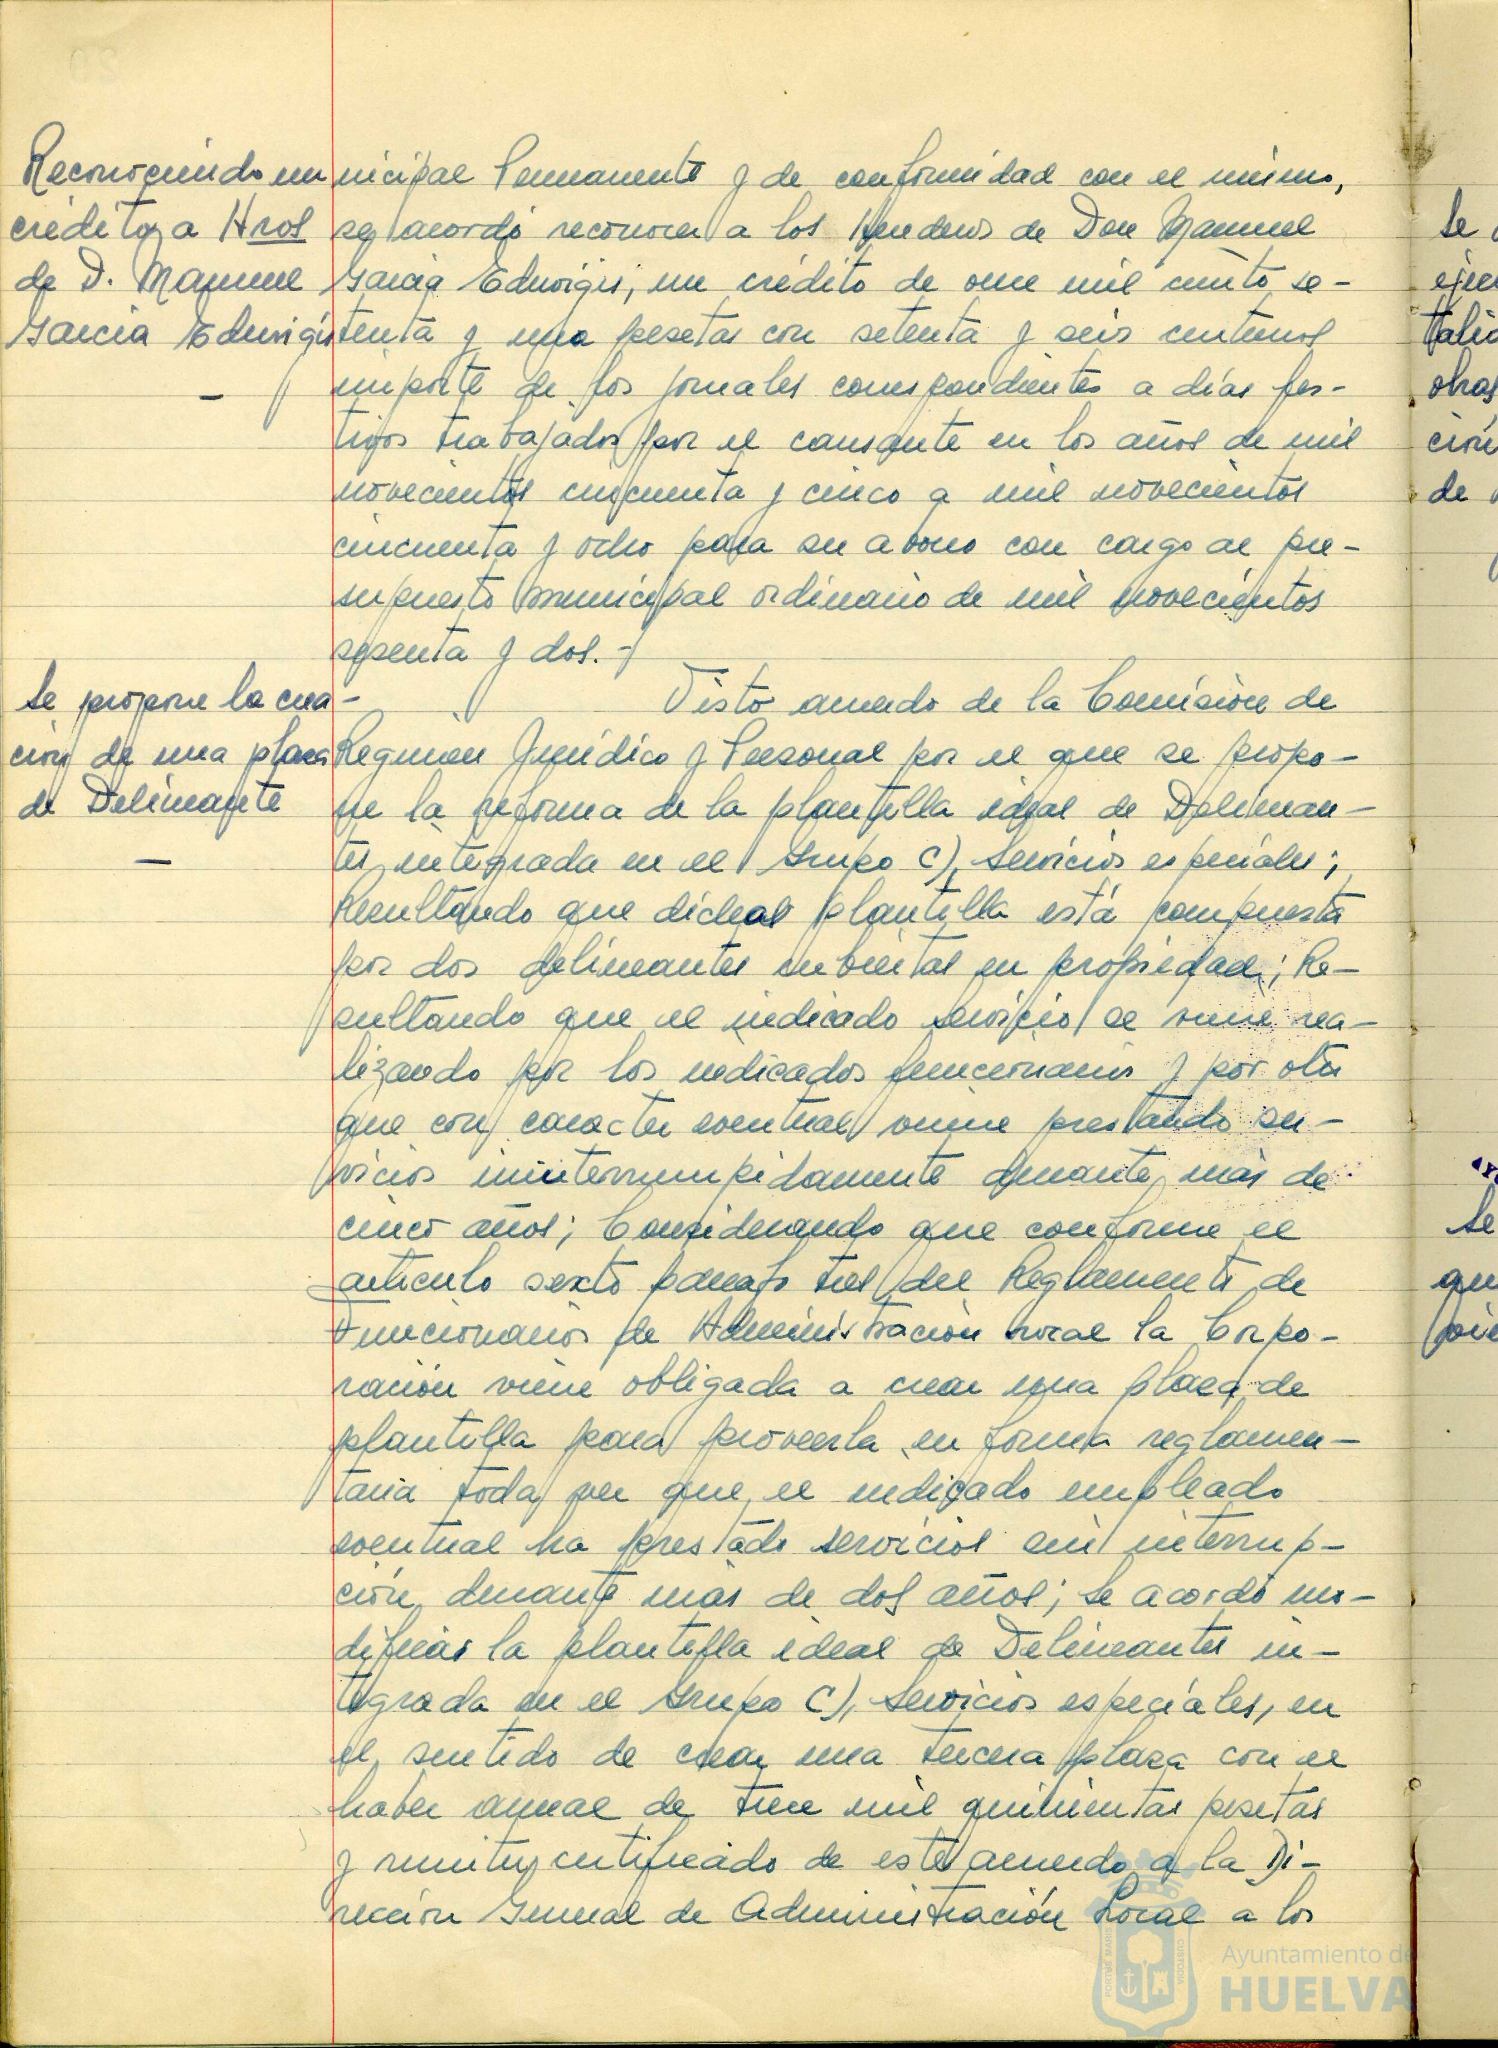 Reconociendo un
crédito a Hros
de D. Manuel
Garcia Eduvigis
nicipal Permanente y de conformidad con el mismo,
se acordó reconocer a los Herederos de Don Manuel
Garcia Eduvigis, un crédito de once mil ciento se-
tenta y una pesetas con setenta y seis centimos
importe de los jornales correspondientes a días fes-
tivos trabajados por el causante en los años de mil
novecientos cincuenta y cinco a mil novecientos
cincuenta y ocho para su abono con cargo al pre-
supuesto municipal ordinario de mil novecientos
sesenta y dos.-
Se propone la crea-
ción de una plaza
de Delineante
Visto acuerdo de la Comisión de
Regimen Juridico y Personal por el que se propo-
ne la reforma de la plantilla ideal de Delinean-
tes integrada en el Grupo C), Servicios especiales;
Resultando que dicha plantilla está compuesta
por dos delineantes cubiertas en propiedad; Re-
sultando que el indicado servicio se viene rea-
lizando por los indicados funcionarios y por otro
que con caracter eventual viene prestando ser-
vicios ininterrumpidamente durante más de
cinco años; Considerando que conforme el
articulo sexto parrafo tres del Reglamento de
Funcionarios de Administración Local la Corpo-
ración viene obligada a crear una plaza de
plantilla para proveerla en forma reglamen-
taria toda vez que el indicado empleado
eventual ha prestado servicios sin interrup-
ción durante más de dos años; Se acordó mo-
dificar la plantilla ideal de Delineantes in-
tegrada en el Grupo C), Servicios especiales, en
el sentido de crear una tercera plaza con el
haber anual de trece mil quinientas pesetas
y remitir certificado de este acuerdo a la Di-
rección General de Administración Local a los
Se
tali
obras
ción
de
Se
Ayuntamiento de
HUELVA
PORTUS MARIS
CUSTODIA